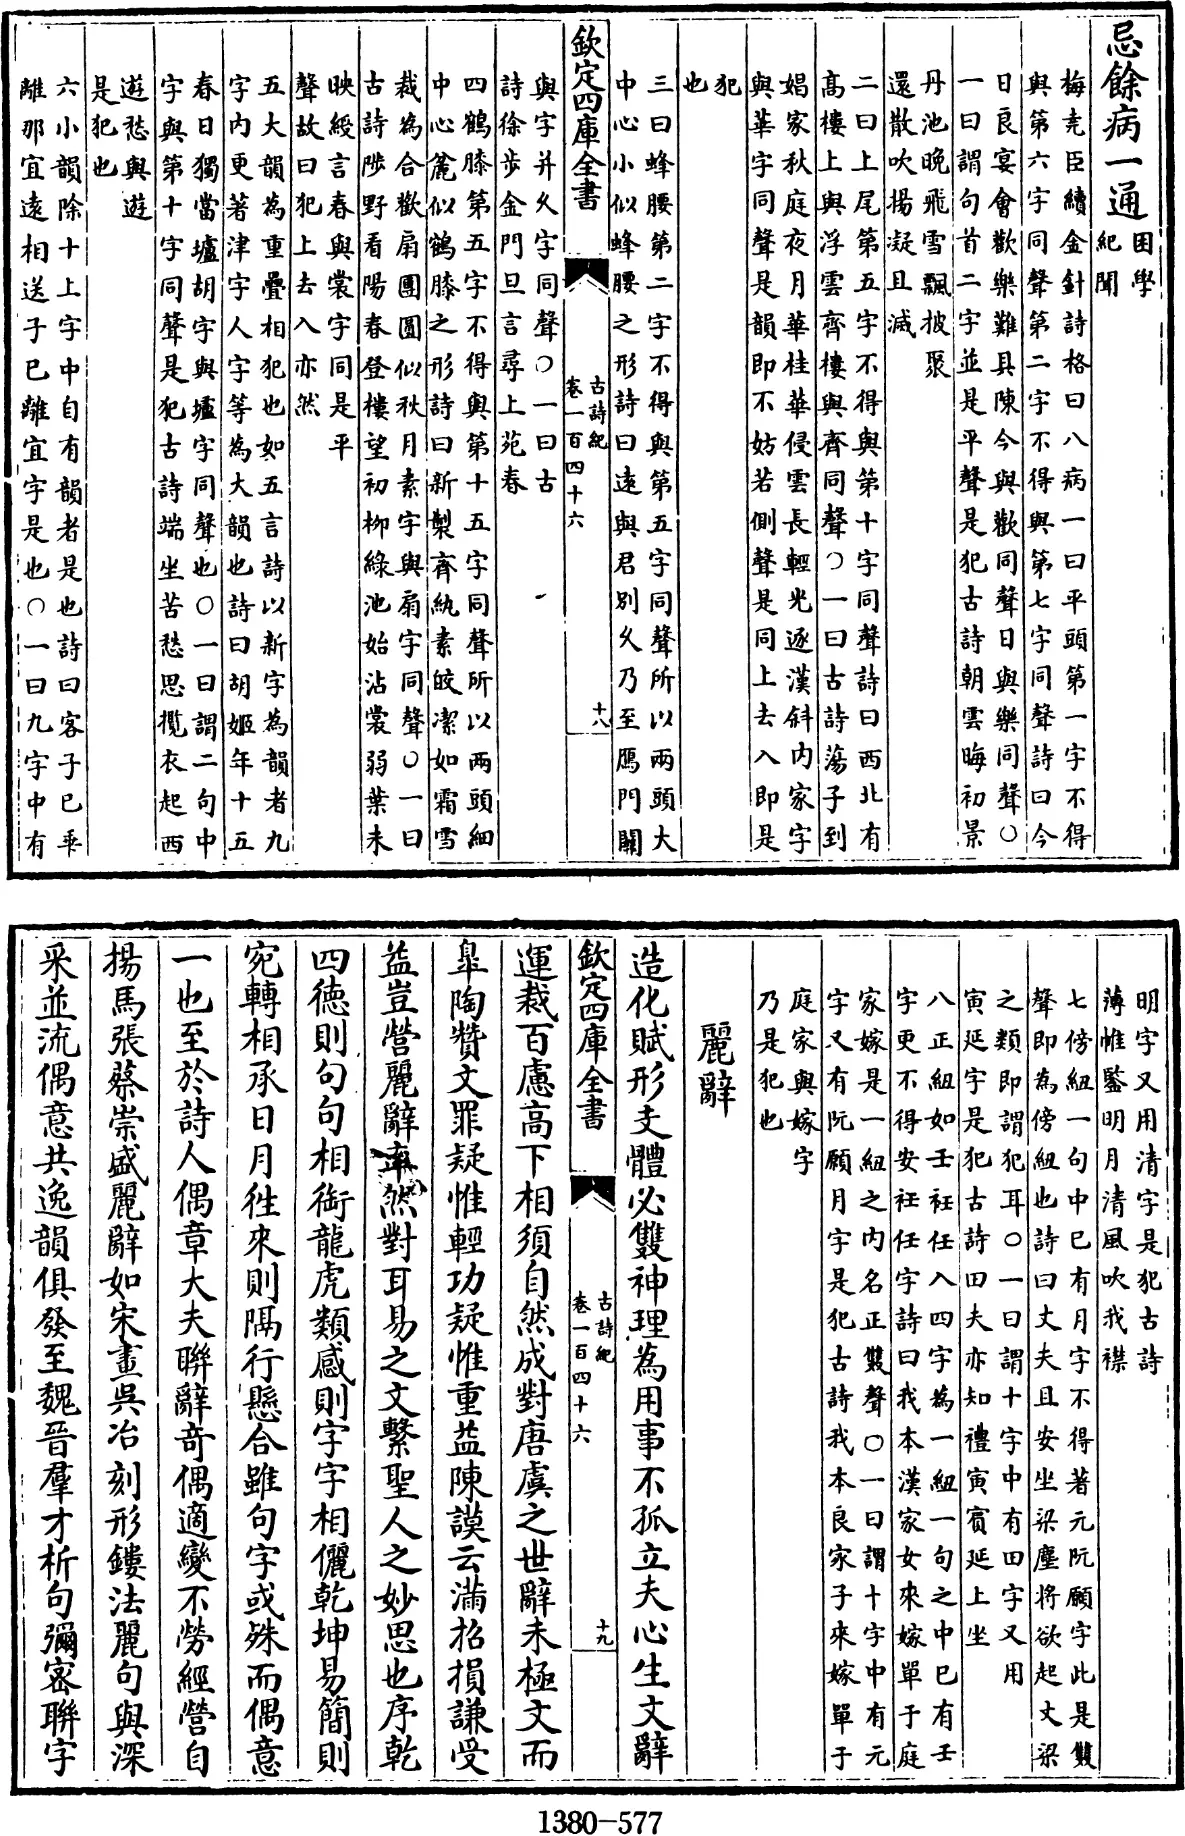 忌餘病一通困學
紀聞
梅堯臣續金針詩格曰八病一曰平頭第一字不得
與第六字同聲第二字不得與第七字同聲詩曰今
日良宴會歡樂難具陳今與歡同聲日與樂同聲○
一曰謂句首二字並是平聲是犯古詩朝雲晦初景
丹池晚飛雪飄披聚
還散吹揚凝且減
二曰上尾第五字不得與第十字同聲詩曰西北有
高樓上與浮雲齊樓與齊同聲○一曰古詩蕩子到
娼家秋庭夜月華桂華侵雲長輕光逐漢斜内家字
與華字同聲是韻即不妨若側聲是同上去入即是
犯
也
三曰蜂腰第二字不得與第五字同聲所以兩頭大
中心小似蜂腰之形詩曰遠與君别乆乃至鴈門關
欽定四庫全書
古詩紀
卷一百四十六
十八
與字并乆字同聲○一曰古
詩徐步金門旦言尋上苑春
四鶴膝第五字不得與第十五字同聲所以兩頭細
中心麄似鶴膝之形詩曰新製齊紈素皎潔如霜雪
裁為合歡扇團圓似秋月素字與扇字同聲○一曰
古詩陟野看陽春登樓望初柳綠池始沾裳弱葉未
映綬言春與裳字同是平
聲故曰犯上去入亦然
五大韻為重疊相犯也如五言詩以新字為韻者九
字内更著津字人字等為大韻也詩曰胡姬年十五
春日獨當壚胡字與壚字同聲也○一曰謂二句中
字與第十字同聲是犯古詩端坐苦愁思攬衣起西
遊愁與遊
是犯也
六小韻除十上字中自有韻者是也詩曰客子已乖
離那宜遠相送子已離宜字是也○一曰九字中有
明字又用清字是犯古詩
薄帷鑒明月清風吹我襟
七傍紐一句中已有月字不得著元阮願字此是雙
聲即為傍紐也詩曰丈夫且安坐梁塵将欲起丈梁
之類即謂犯耳○一曰謂十字中有田字又用
寅延字是犯古詩田夫亦知禮寅賓延上坐
八正紐如壬衽任入四字為一紐一句之中已有壬
字更不得安衽任字詩曰我本漢家女來嫁單于庭
家嫁是一紐之内名正雙聲○一曰謂十字中有元
字又有阮願月字是犯古詩我本良家子來嫁單于
庭家與嫁字
乃是犯也
麗辭
造化賦形支體必雙神理為用事不孤立夫心生文辭
欽定四庫全書
古詩紀
卷一百四十六
十九
運裁百慮高下相須自然成對唐虞之世辭未極文而
臯陶贊文罪疑惟輕功疑惟重益陳謨云滿招損謙受
益豈營麗辭率然對耳易之文繫聖人之妙思也序乾
四徳則句句相銜龍虎類感則字字相儷乾坤易簡則
宛轉相承日月徃來則隔行懸合雖句字或殊而偶意
一也至於詩人偶章大夫聯辭竒偶適變不勞經營自
揚馬張蔡崇盛麗辭如宋畫吳冶刻形鏤法麗句與深
采並流偶意共逸韻俱發至魏晉羣才析句彌密聯字
1380-577